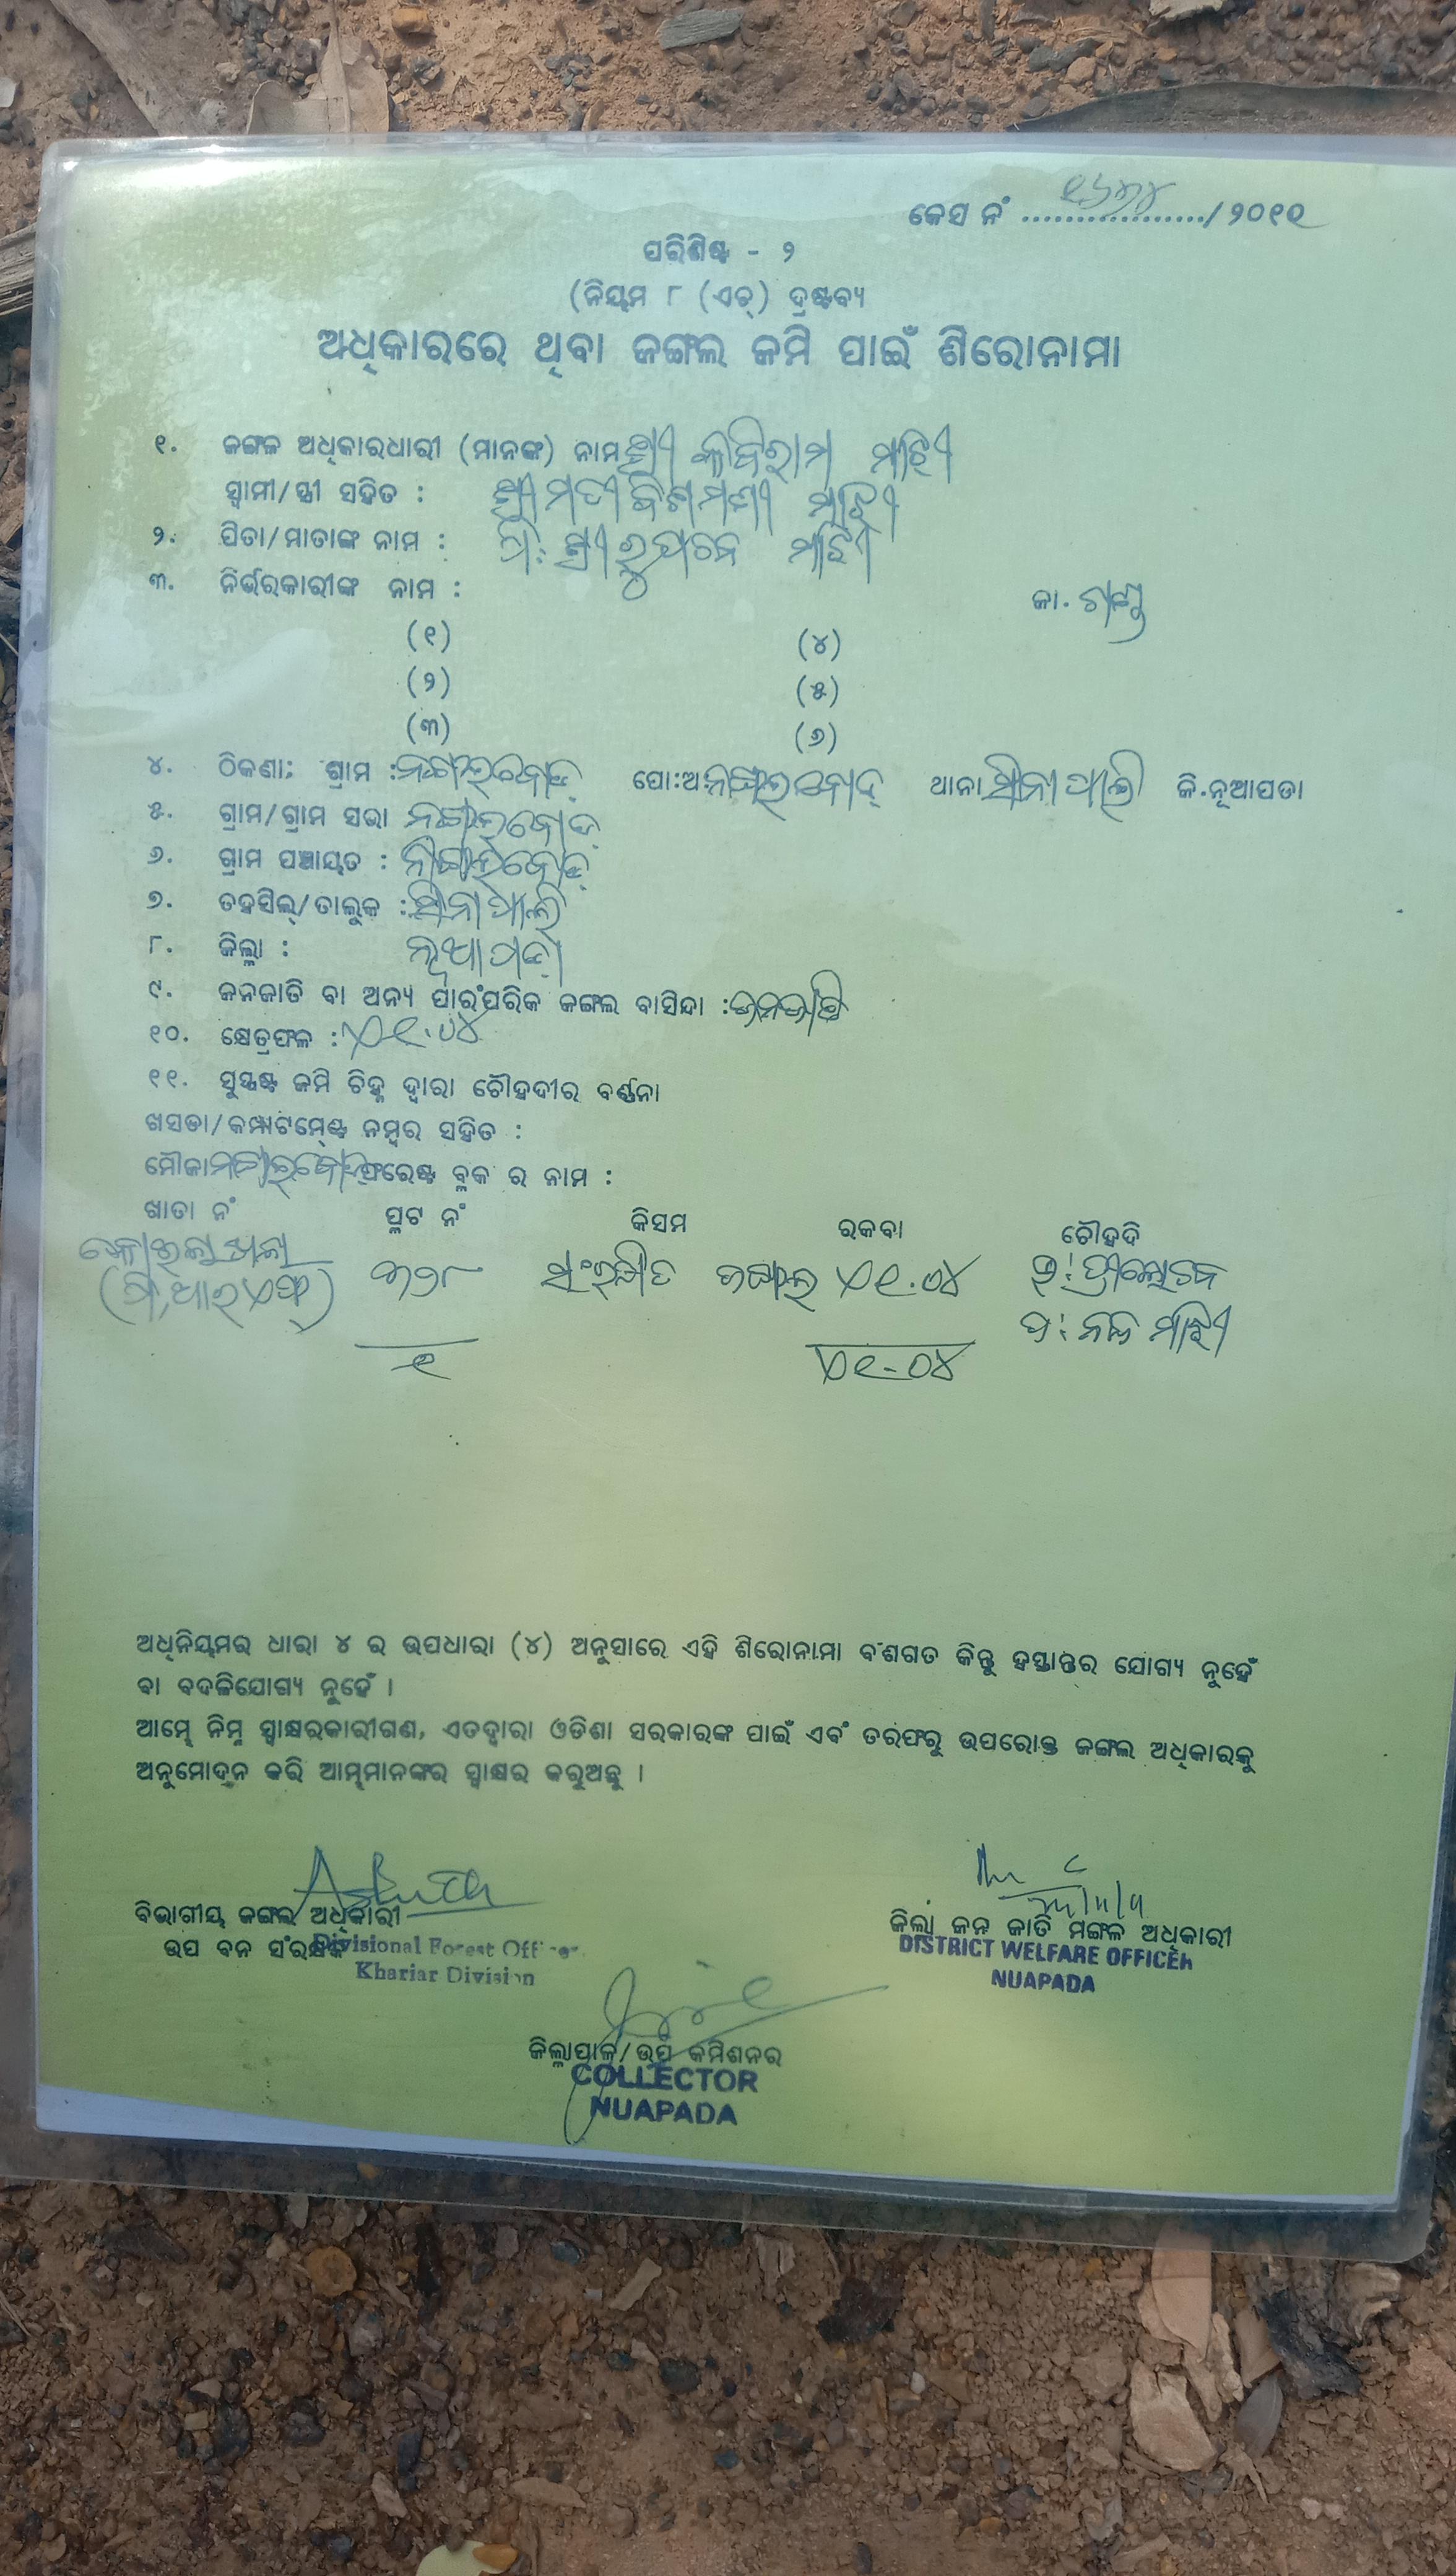 କେସ ନଂ ................../ ୨୦୧୧
ପରିଶିଷ୍ଟ - ୨
(ନିୟମ ୮ (ଏଚ୍) ଦ୍ରଷ୍ଟବ୍ୟ
ଅଧିକାରରେ ଥିବା ଜଙ୍ଗଲ ଜମି ପାଇଁ ଶିରୋନାମା
୧. ଜଙ୍ଗଳ ଅଧିକାରଧାରୀ (ମାନଙ୍କ) ନାମ ଶ୍ରୀ କବିରାମ ମାଝି
ସ୍ୱାମୀ/ସ୍ତ୍ରୀ ସହିତ : ଶ୍ରୀମତୀ ମାଝି
୨. ପିତା/ମାତାଙ୍କ ନାମ : ପି: ଶ୍ରୀ ମାଝି
୩. ନିର୍ଭରକାରୀଙ୍କ ନାମ :
ଜା. ଗଣ୍ଡ
(୧) (୪)
(୨) (୫)
(୩) (୬)
୪. ଠିକଣା: ଗ୍ରାମ : ପୋ:ଅ: ଥାନା ସୀନାପାଲି ଜି.ନୂଆପଡା
୫. ଗ୍ରାମ/ଗ୍ରାମ ସଭା
୬. ଗ୍ରାମ ପଞ୍ଚାୟତ :
୭. ତହସିଲ୍/ତାଲୁକ : ସୀନାପାଲି
୮. ଜିଲ୍ଲା : ନୂଆପଡା
୯. ଜନଜାତି ବା ଅନ୍ୟ ପାରଂପରିକ ଜଙ୍ଗଲ ବାସିନ୍ଦା : ଜନଜାତି
୧୦. କ୍ଷେତ୍ରଫଳ : ଏ୧.୦୪
୧୧. ସୁସ୍ପଷ୍ଟ ଜମି ଚିହ୍ନ ଦ୍ୱାରା ଚୌହଦୀର ବର୍ଣ୍ଣନା
ଖସଡା/କମ୍ପାଟମେଣ୍ଟ ନମ୍ବର ସହିତ :
ମୌଜା ଫରେଷ୍ଟ ବ୍ଲକ ର ନାମ :
ଖାତା ନଂ ପ୍ଲଟ ନଂ କିସମ ରକବା ଚୌହଦି
(ପି,ଆର୍ଏଫ୍) ୩୨୮ ସଂରକ୍ଷିତ ଜଙ୍ଗଲ ଏ୧.୦୪ ଉ: ତ୍ରୀଲୋଚନ
ପ: ମାଝି
୧ ଏ୧-୦୪
ଅଧିନିୟମର ଧାରା ୪ ର ଉପଧାରା (୪) ଅନୁସାରେ ଏହି ଶିରୋନାମା ବଂଶଗତ କିନ୍ତୁ ହସ୍ତାନ୍ତର ଯୋଗ୍ୟ ନୁହେଁ
ବା ବଦଳିଯୋଗ୍ୟ ନୁହେଁ ।
ଆମ୍ଭେ ନିମ୍ନ ସ୍ୱାକ୍ଷରକାରୀଗଣ, ଏତଦ୍ୱାରା ଓଡିଶା ସରକାରଙ୍କ ପାଇଁ ଏବଂ ତରଫରୁ ଉପରୋକ୍ତ ଜଙ୍ଗଲ ଅଧିକାରକୁ
ଅନୁମୋଦନ କରି ଆମ୍ଭମାନଙ୍କର ସ୍ୱାକ୍ଷର କରୁଅଛୁ ।
ବିଭାଗୀୟ ଜଙ୍ଗଲ ଅଧିକାରୀ
ଉପ ବନ ସଂରକ୍ଷକ
Divisional Forest Officer
Khariar Division
ଜିଲ୍ଲା ଜନ ଜାତି ମଙ୍ଗଳ ଅଧିକାରୀ
DISTRICT WELFARE OFFICER
NUAPADA
ଜିଲ୍ଲାପାଳ/ଉପ କମିଶନର
COLLECTOR
NUAPADA